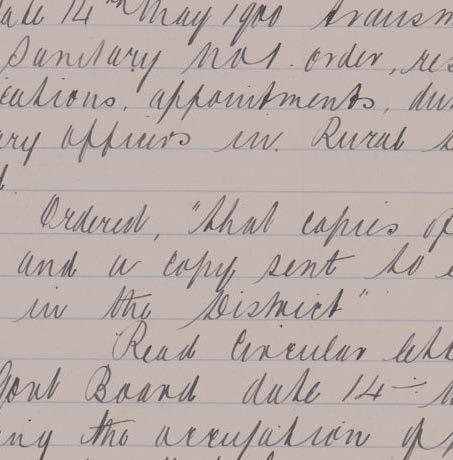 date 14th May 1900 transm
Sanitary Not. order, res
ications, appointments, du
ary officers in Rural
d.
Ordered, "that copies of
and a copy sent to e
in the District"
Read Circular lett
Govt Board date 14th
ing the occupation of